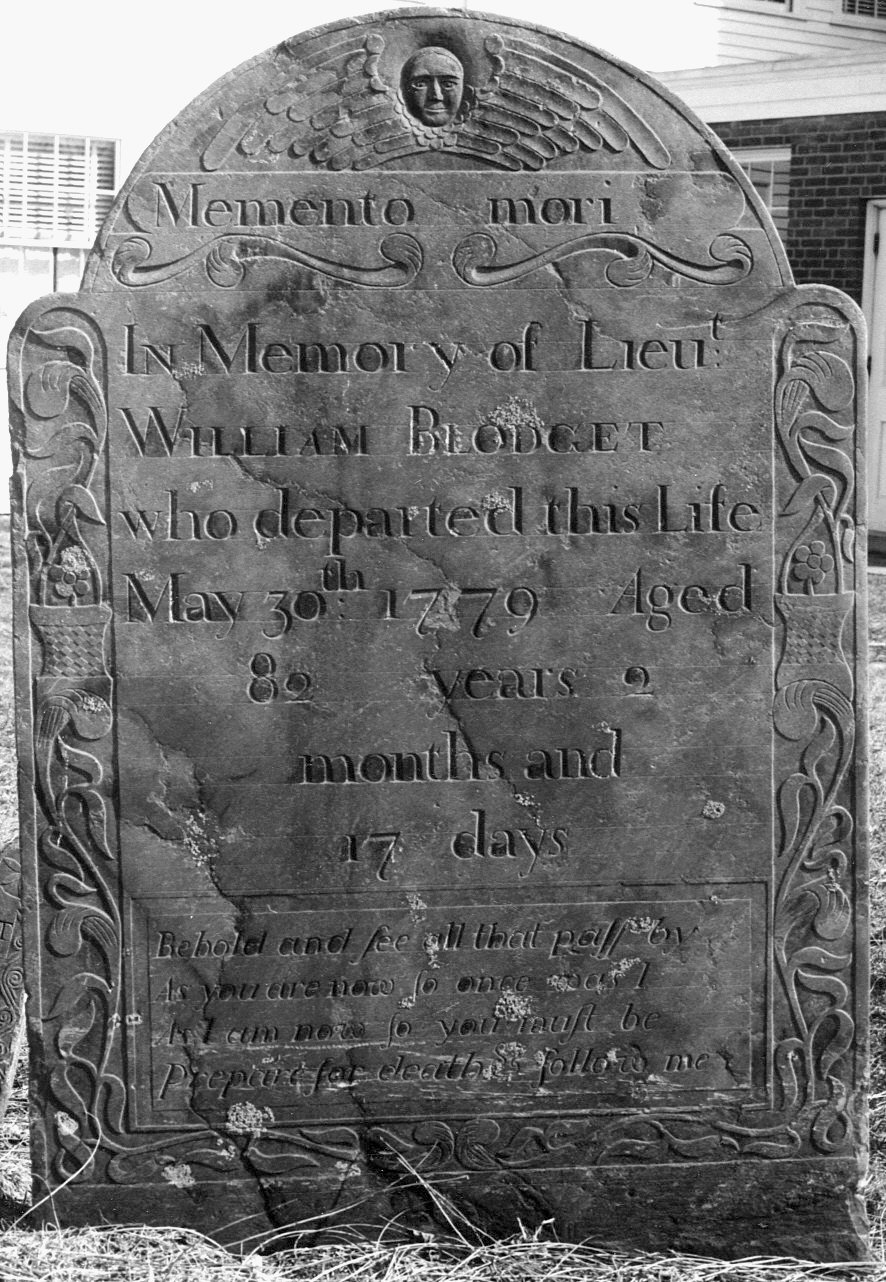 Memento mori
In Memory of Lieut:
William Blodget
who departed this Life
May 30th: 1779 Aged
82 years 2
months and
17 days
Behold and ſee all that paſs by
As you are now ſo once was I
As I am now ſo you muſt be
Prepare for death & follow me